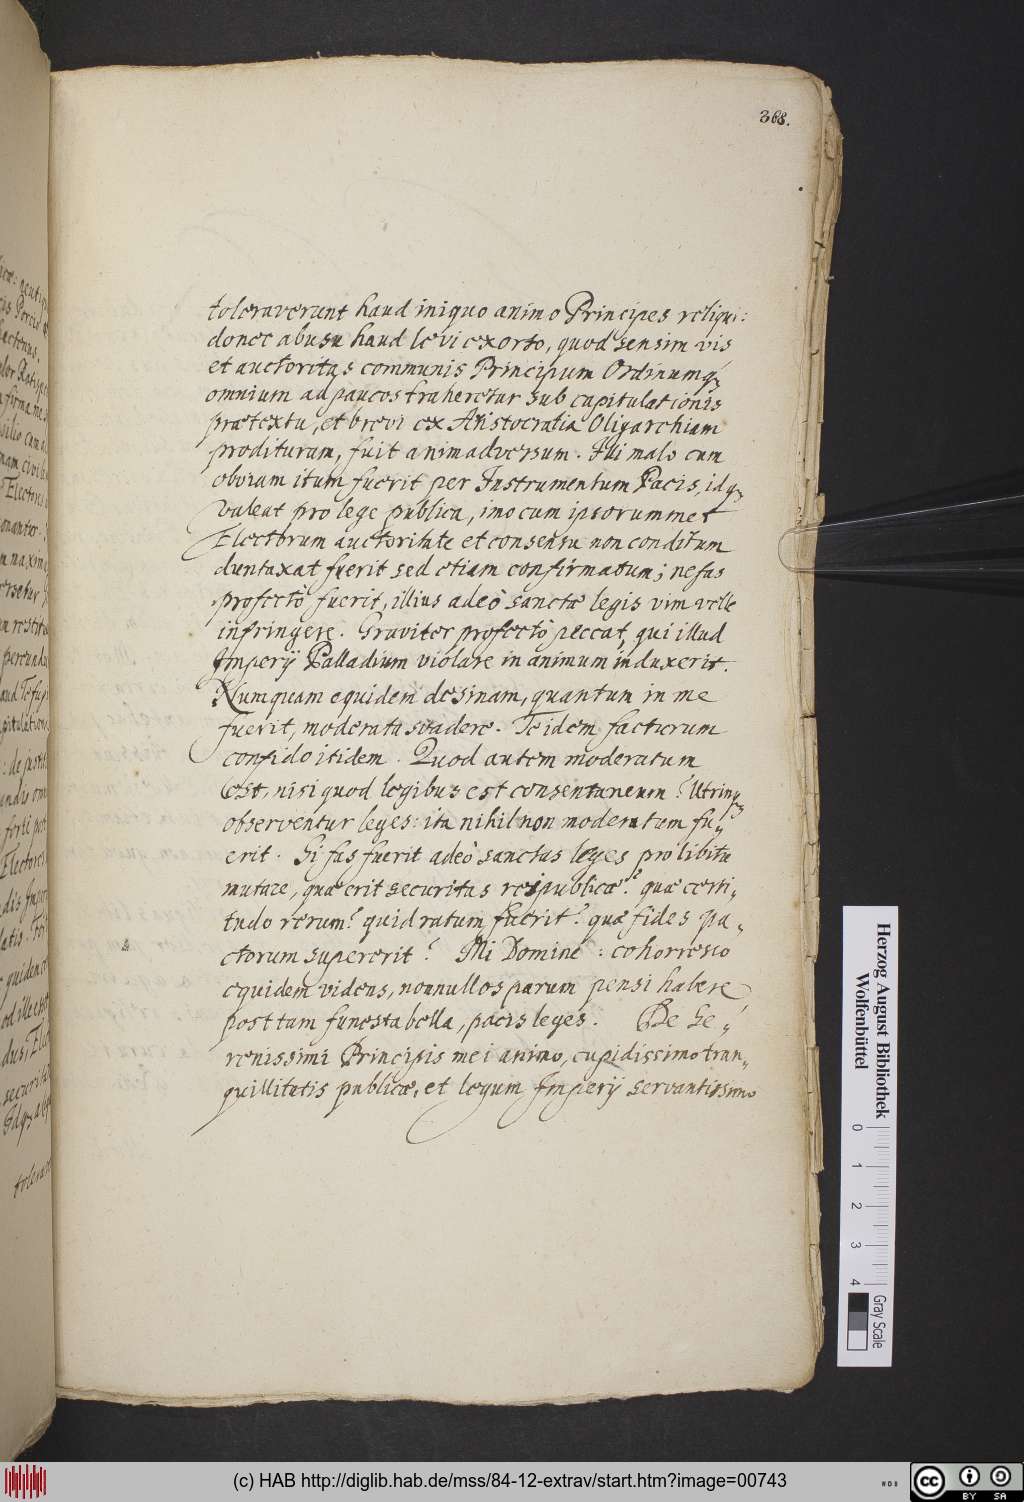 368.
toleraverunt haud iniquo animo Principes reliqui:
donec abusu haud levi exorto, quod sensim vis
et auctoritas communis Principum Ordinumq́;
omnium ad paucos traheretur sub capitulationis
prætextu, et brevi ex Aristocratia Oligarchiam
prodituram, fuit animadversum. Cui malo cum
obviam itum fuerit per Instrumentum Pacis, idq;
valeat pro lege publica, imo cum ipsorummet
Electorum auctoritate et consensu non conditum
duntaxat fuerit sed etiam confirmatum; nefas
profectò fuerit, illius adeò sanctæ legis vim velle
infringere. Graviter profectò peccat, qui illud
Imperij Palladium violare in animum induxerit.
Numquam equidem desinam, quantum in me
fuerit, moderata suadere. Te idem facturum
confido itidem. Quod autem moderatum
est, nisi quod legibus est consentaneum? Utrinq;
observentur leges: ita nihil non moderatum fu„
erit. Si fas fuerit adeò sanctas leges pro libitu
mutare, quæ erit securitas reipublicæ? quæ certi„
tudo rerum? quid ratum fuerit? quæ fides pa„
ctorum supererit? Mi Domine: cohorresco
equidem videns, nonnullos parum pensi habere
post tam funesta bella, pacis leges. De Se„
renissimi Principis mei animo, cupidissimo tran„
quillitatis publicæ, et legum Imperij servantissimo
tolera
Herzog August Bibliothek
Wolfenbüttel
0 1 2 3 4
Gray Scale
(c) HAB http://diglib.hab.de/mss/84-12-extrav/start.htm?image=00743
cc BY SA